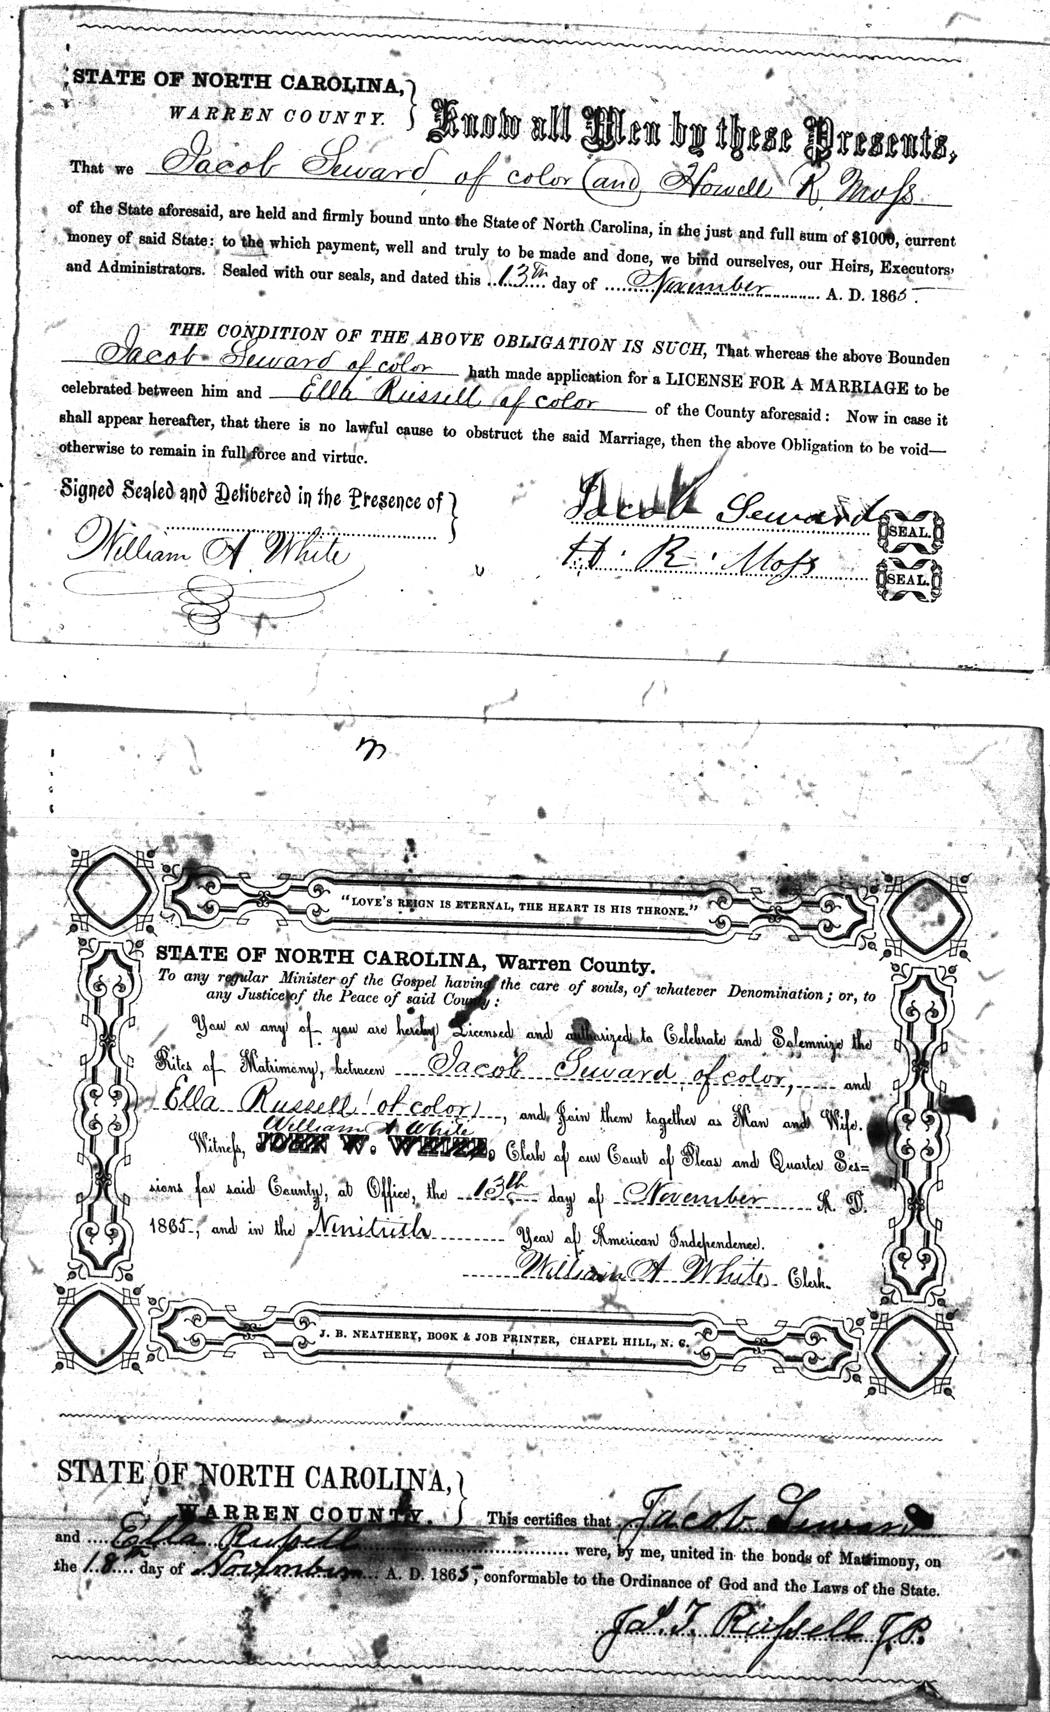 STATE OF NORTH CAROLINA,
WARREN COUNTY.
Know all Men by these Presents,
That we Jacob Seward, of color (and) Howell R. Moss
of the State aforesaid, are held and firmly bound unto the State of North Carolina, in the just and full sum of $1000, current
money of said State: to the which payment, well and truly to be made and done, we bind ourselves, our Heirs, Executors
and Administrators. Sealed with our seals, and dated this 13th day of November A. D. 1865.
THE CONDITION OF THE ABOVE OBLIGATION IS SUCH, That whereas the above Bounden
Jacob Seward of color hath made application for a LICENSE FOR A MARRIAGE to be
celebrated between him and Ella Russell of color of the County aforesaid: Now in case it
shall appear hereafter, that there is no lawful cause to obstruct the said Marriage, then the above Obligation to be void—
otherwise to remain in full force and virtue.
Signed Sealed and Delivered in the Presence of
William A. White
Jacob Seward SEAL.
H. R. Moss SEAL.
"LOVE'S REIGN IS ETERNAL, THE HEART IS HIS THRONE."
STATE OF NORTH CAROLINA, Warren County.
To any regular Minister of the Gospel having the care of souls, of whatever Denomination; or, to
any Justice of the Peace of said County:
You or any of you are hereby Licensed and authorized to Celebrate and Solemnize the
Rites of Matrimony, between Jacob Seward, of color, and
Ella Russell (of color), and Join them together as Man and Wife.
William A White
Witness, JOHN W. WHITE, Clerk of our Court of Pleas and Quarter Ses=
sions for said County, at Office, the 13th day of November A. D.
1865, and in the Ninitieth Year of American Independence.
William A White Clerk.
J. B. NEATHERY, BOOK & JOB PRINTER, CHAPEL HILL, N. C.
STATE OF NORTH CAROLINA,
WARREN COUNTY.
This certifies that Jacob Seward
and Ella Russell were, by me, united in the bonds of Matrimony, on
the 18th day of November A. D. 1865, conformable to the Ordinance of God and the Laws of the State.
Russell J.P.